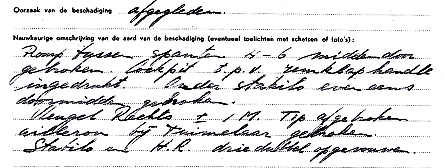 Oorzaak van de beschadiging afgegleden.
Nauwkeurige omschrijving van de aard van de beschadiging (eventueel toelichten met schetsen of foto's):
Romp tussen spanten 4-6 middendoor
gebroken. Cockpit t.p.v. remklephandle
ingedrukt. Onder stabilo eveneens
doormidden gebroken.
Vleugel Rechts ± 1 M. Tip afgebroken
aileron bij Tuimelaar gebroken.
Stabilo en H.R. driedubbel opgevouwen.